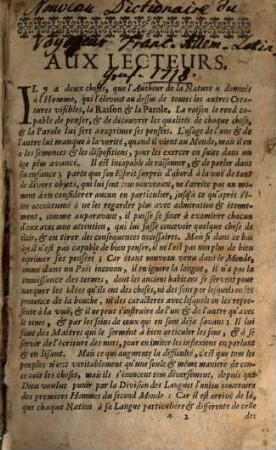 Nouveau Dictionaire du
Voyageur Franc. Allem. Latin
AUX LECTEURS.
1718.
IL y a deux choses, que l'Autheur de la Nature a données
à l'Homme, qui l'élevent au dessus de toutes les autres Crea-
tures visibles, la Raison & la Parole. La raison le rend ca-
pable de penser, & de découvrir les qualités de chaque chose,
& la Parole lui sert à exprimer ses pensées. L'usage de l'une & de
l'autre lui manque à la verité, quand il vient au Monde, mais il en
a les semences & les dispositions, pour les exercer en suite dans un
âge plus avancé. Il est incapable de raisonner, & de parler dans
son enfance, parte que son Esprit surpris d'abord à la vuë de tant
de divers objets, qui lui sont tous nouveaux, ne s'arrête pas un mo-
ment à en considerer aucun en particulier, jusqu'à ce qu'aprés s'ê-
tre accoûtumé à ne les regarder plus avec admiration & étonne-
ment, comme auparavant, il puisse se fixer à examiner chacun
d'eux avec une attention, qui lui fasse concevoir quelque chose de
clair, & en tirer des consequences necessaires. Mais si dans ce bas
âge il n'est pas capable de bien penser, il ne l'est pas non plus de bien
exprimer ses pensées; Car étant nouveau venu dans le Monde,
comme dans un Païs inconnu, il en ignore la langue, il n'a pas la
connoissance des termes, dont les anciens habitans se servent pour
marquer les idées qu'ils ont des choses, ni des sons par lesquels on les
prononce de la bouche, ni des caracteres avec lesquels on les repre-
sente à la vuë, & il ne peut s'instruire de l'un & de l'autre qu'avec
le tems, & par les soins de ceux qui en sont déja savans: Il lui
faut des Maîtres qui le forment à bien articuler les sons, & à se
servir de l'écriture des mots, pour en imiter les inflexions en parlant
& en lisant. Mais ce qui augmente la difficulté, c'est que tous les
peuples n'ont veritablement qu'une seule & même maniere de con-
cevoir les choses, mais ils s'énoncent tous diversement, depuis que
Dieu voulut punir par la Division des Langues l'union contraire
des premiers Hommes du second Monde: Car il est arrivé de là,
que chaque Nation a sa Langue particuliere & differente de celle
2 des